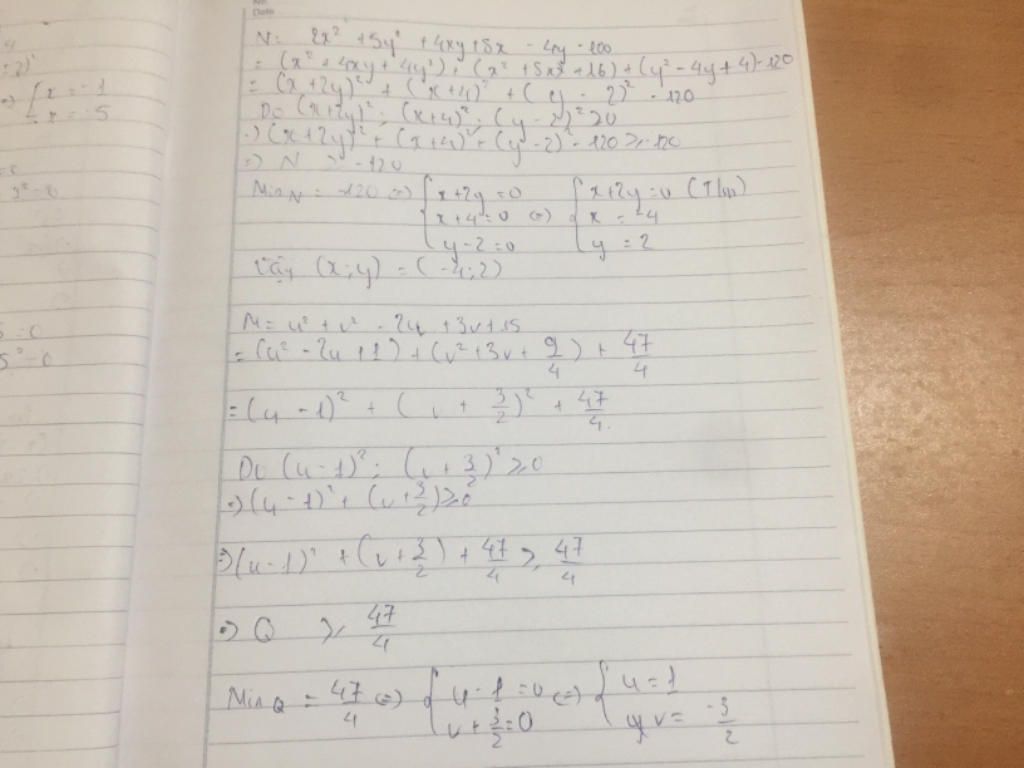 No.
Date
4
x = -1
x = -5
N = 2x² + 5y² + 4xy + 8x - 4y - 100
= (x² + 4xy + 4y²) + (x² + 8x + 16) + (y² - 4y + 4) - 120
= (x + 2y)² + (x + 4)² + (y - 2)² - 120
Do (x + 2y)² ; (x + 4)² ; (y - 2)² ≥ 0
=> (x + 2y)² + (x + 4)² + (y - 2)² - 120 ≥ -120
=> N ≥ -120
Min N = -120 <=> { x + 2y = 0 { x + 2y = 0 (T/m)
x + 4 = 0 <=> x = -4
y - 2 = 0 y = 2
Vậy (x ; y) = (-4 ; 2)
5 = 0
5² = 0
M = u² + v² - 2u + 3v + 15
= (u² - 2u + 1) + (v² + 3v + 9/4) + 47/4
= (u - 1)² + (v + 3/2)² + 47/4
Do (u - 1)² ; (v + 3/2)² ≥ 0
=> (u - 1)² + (v + 3/2) ≥ 0
=> (u - 1)² + (v + 3/2) + 47/4 ≥ 47/4
=> Q ≥ 47/4
Min Q = 47/4 <=> { u - 1 = 0 <=> { u = 1
v + 3/2 = 0 v = -3/2